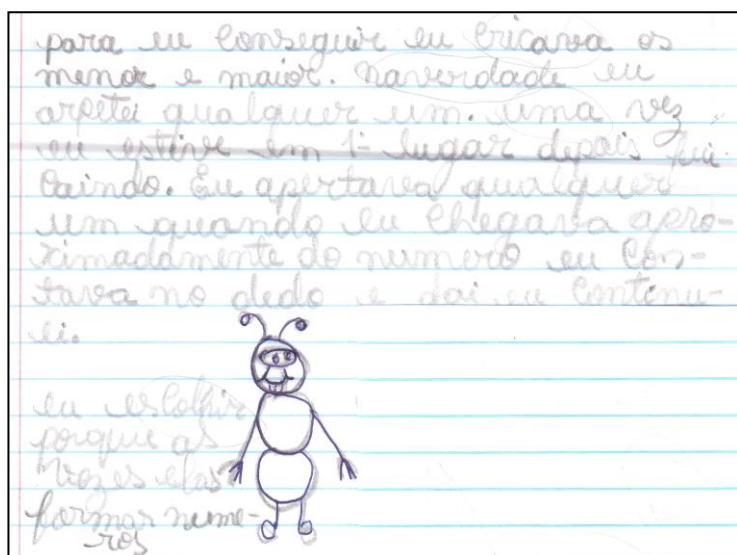 para eu conseguir eu tricava os
menor e maior. naverdade eu
arpetei qualquer um. uma vez
eu estive em 1º lugar depois fui
caindo. Eu apertava qualquer
um quando eu chegava apro-
ximadamente do numero eu con-
tava no dedo e dai eu continu-
ei.
eu escolhir
porque as
vezes elas
formar nume-
ros